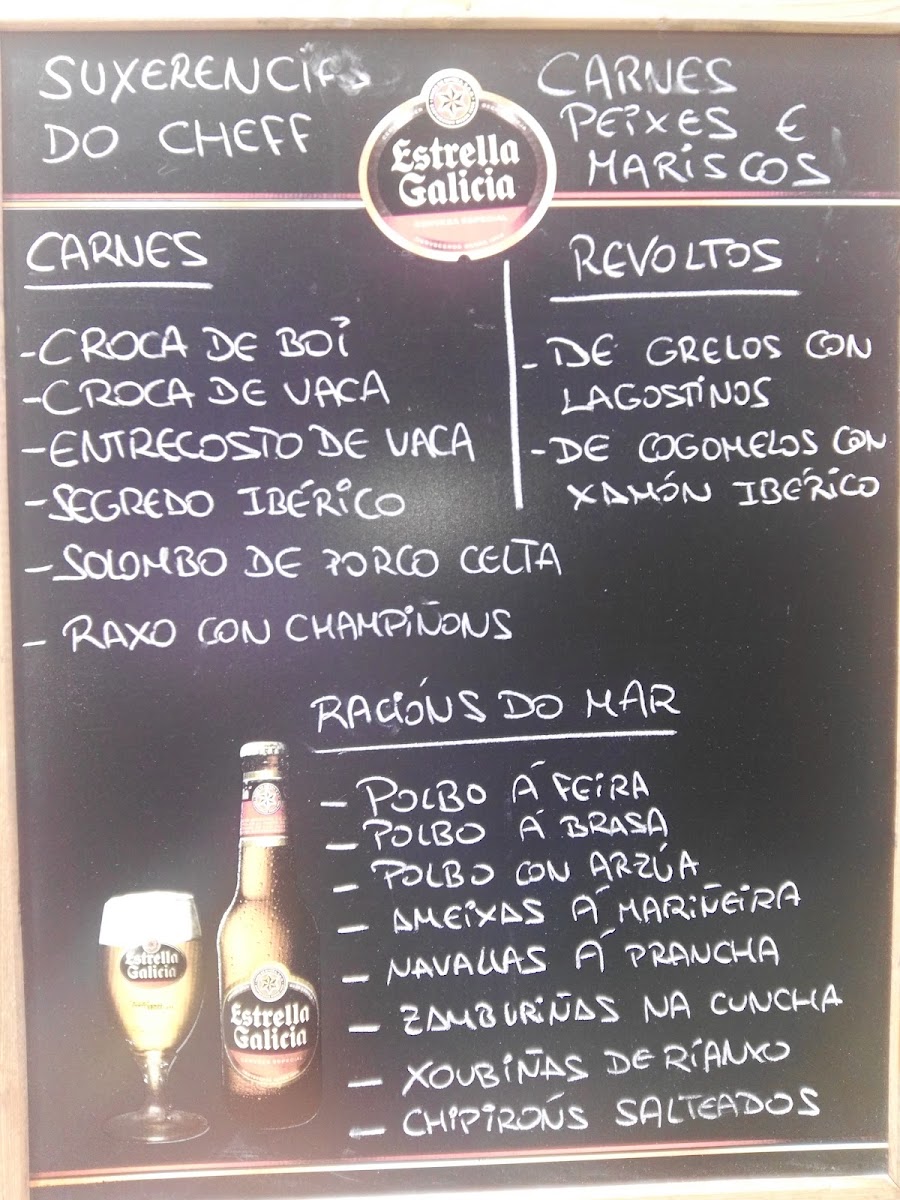 SUXERENCIAS
DO CHEFF
Estrella
Galicia
CERVEZA ESPECIAL
CARNES
PEIXES E
MARISCOS
CARNES
-CROCA DE BOI
-CROCA DE VACA
-ENTRECOSTO DE VACA
-SEGREDO IBÉRICO
-SOLOMBO DE PORCO CELTA
- RAXO CON CHAMPIÑONS
REVOLTOS
- DE GRELOS CON
LAGOSTINOS
-DE COGOMELOS CON
XAMÓN IBÉRICO
RACIÓNS DO MAR
- POLBO Á FEIRA
- POLBO Á BRASA
- POLBO CON ARZÚA
- AMEIXAS Á MARIÑEIRA
- NAVALLAS Á PRANCHA
- ZAMBURIÑAS NA CUNCHA
- XOUBIÑAS DE RIANXO
- CHIPIRÓNS SALTEADOS
Estrella
Galicia
Estrella
Galicia